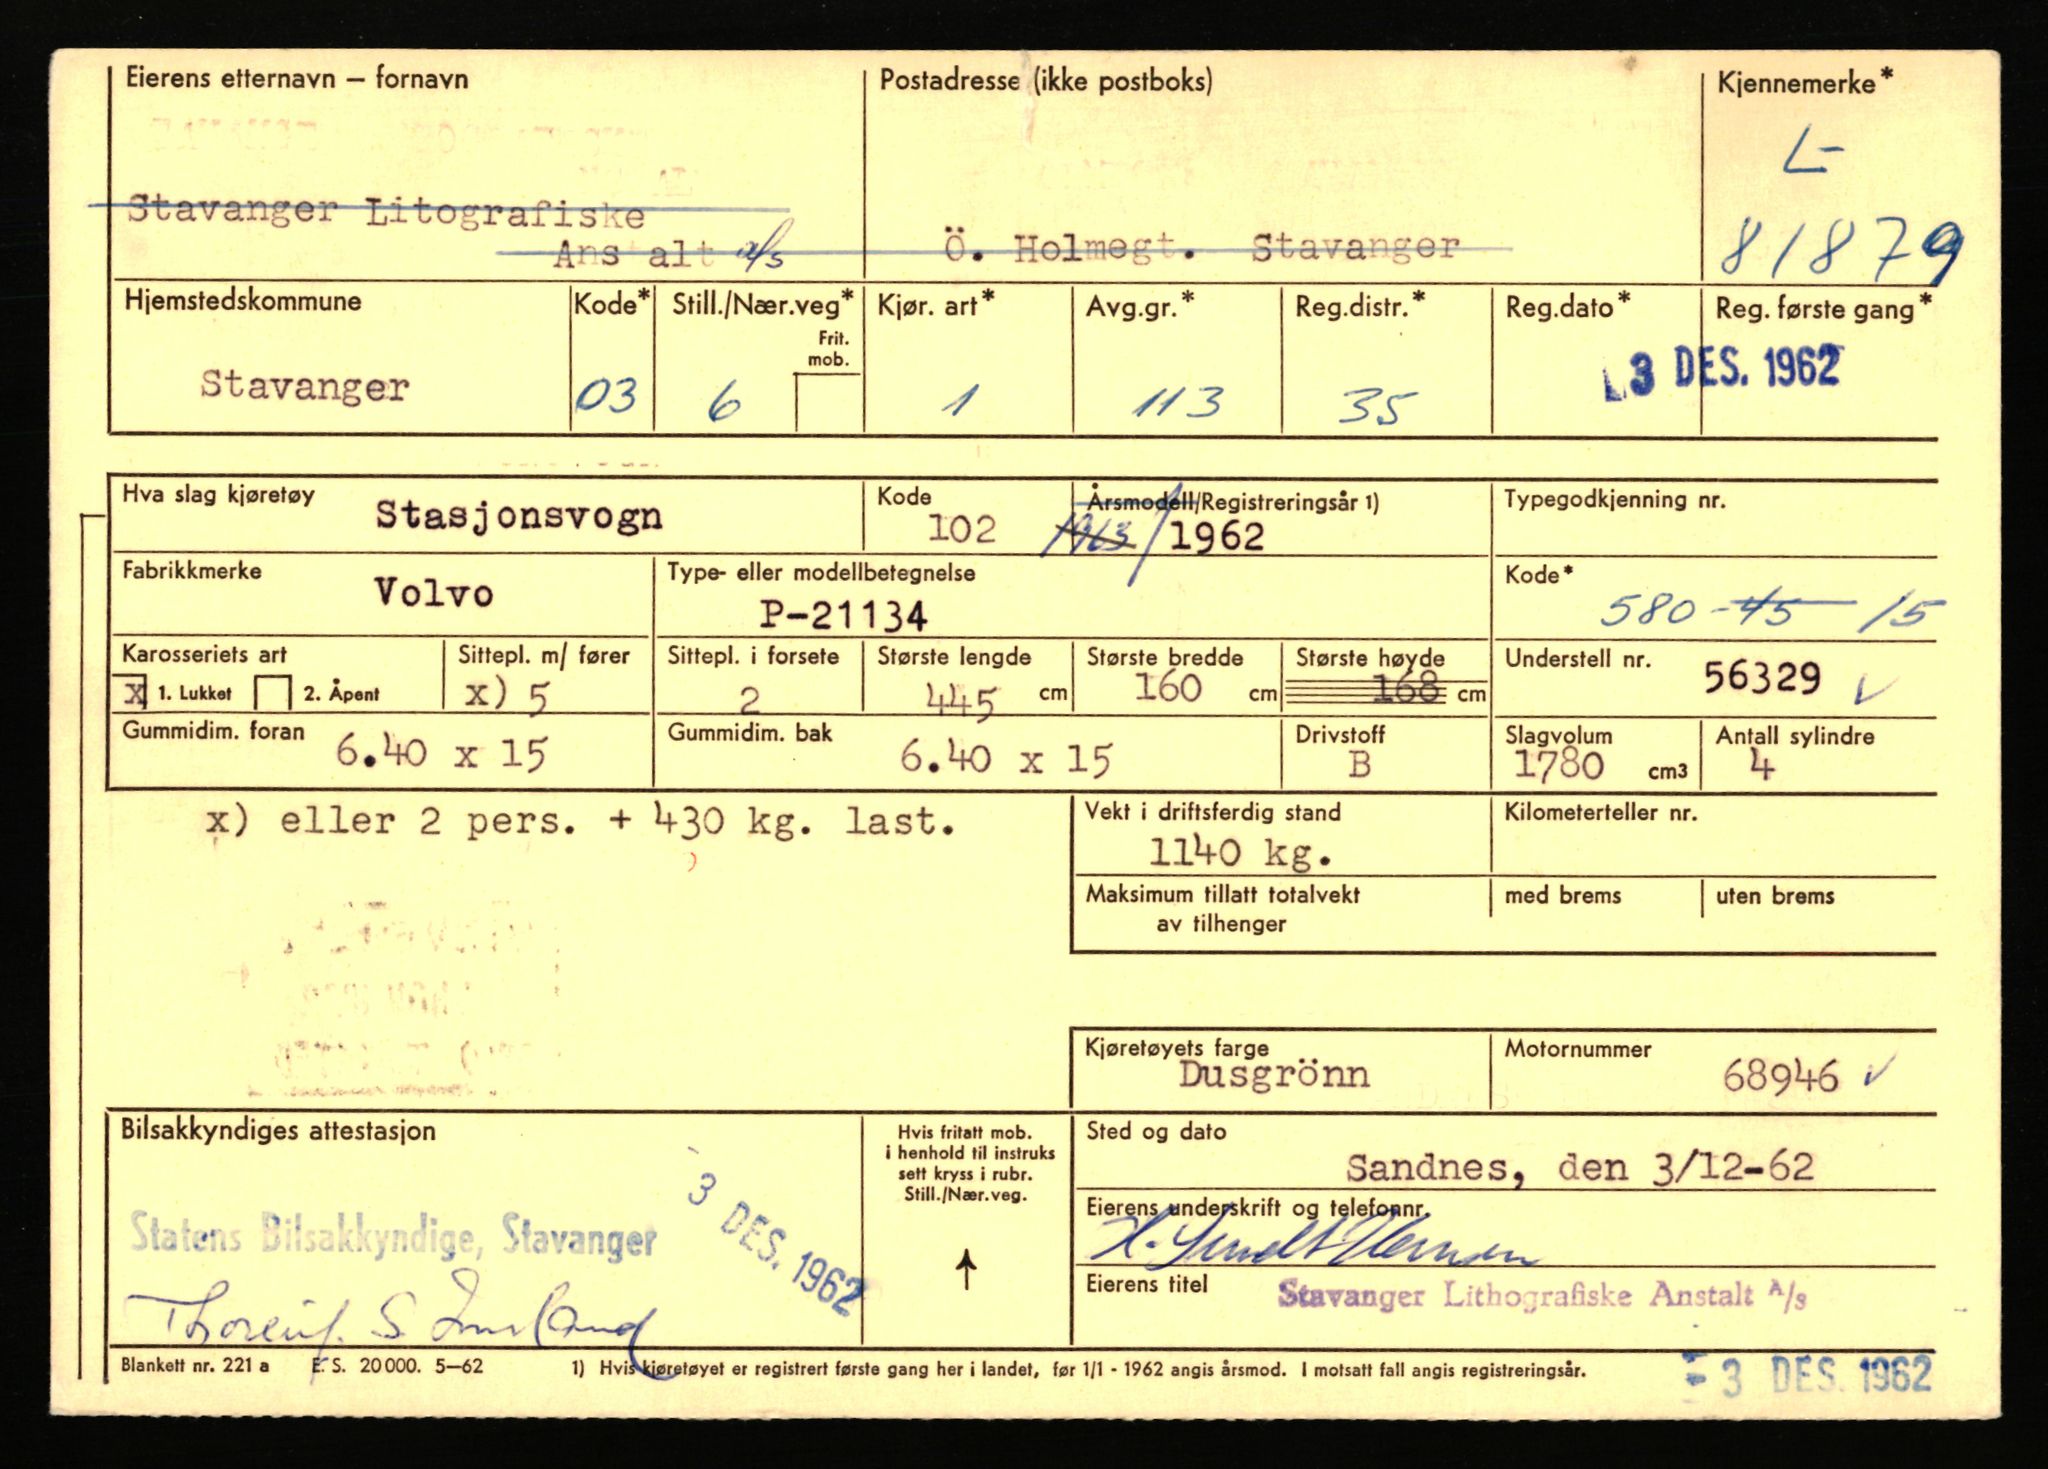 Eierens etternavn – fornavn
Postadresse (ikke postboks)
Kjennemerke*
L-
Stavanger Litografiske
Anstalt a/s
Ö. Holmegt. Stavanger
81879
Hjemstedskommune
Kode*
Still./Nær.veg*
Frit. mob.
Kjør. art*
Avg.gr.*
Reg.distr.*
Reg.dato*
Reg. første gang*
Stavanger
03
6
1
113
35
3 DES. 1962
Hva slag kjøretøy
Stasjonsvogn
Kode
102
Årsmodell/Registreringsår 1)
1963/1962
Typegodkjenning nr.
Fabrikkmerke
Volvo
Type- eller modellbetegnelse
P-21134
Kode*
580-45 15
Karosseriets art
x 1. Lukket 2. Åpent
Sittepl. m/ fører
x) 5
Sittepl. i forsete
2
Største lengde
445 cm
Største bredde
160 cm
Største høyde
168 cm
Understell nr.
56329
Gummidim. foran
6.40 x 15
Gummidim. bak
6.40 x 15
Drivstoff
B
Slagvolum
1780 cm3
Antall sylindre
4
x) eller 2 pers. + 430 kg. last.
Vekt i driftsferdig stand
1140 kg.
Kilometerteller nr.
Maksimum tillatt totalvekt
av tilhenger
med brems
uten brems
Kjøretøyets farge
Dusgrönn
Motornummer
68946
Bilsakkyndiges attestasjon
3 DES. 1962
Statens Bilsakkyndige, Stavanger
Hvis fritatt mob.
i henhold til instruks
sett kryss i rubr.
Still./Nær.veg.
Sted og dato
Sandnes, den 3/12-62
Eierens underskrift og telefonnr.
Eierens titel
Stavanger Lithografiske Anstalt A/s
Blankett nr. 221 a E. S. 20 000. 5–62
1) Hvis kjøretøyet er registrert første gang her i landet, før 1/1 - 1962 angis årsmod. I motsatt fall angis registreringsår.
3 DES. 1962